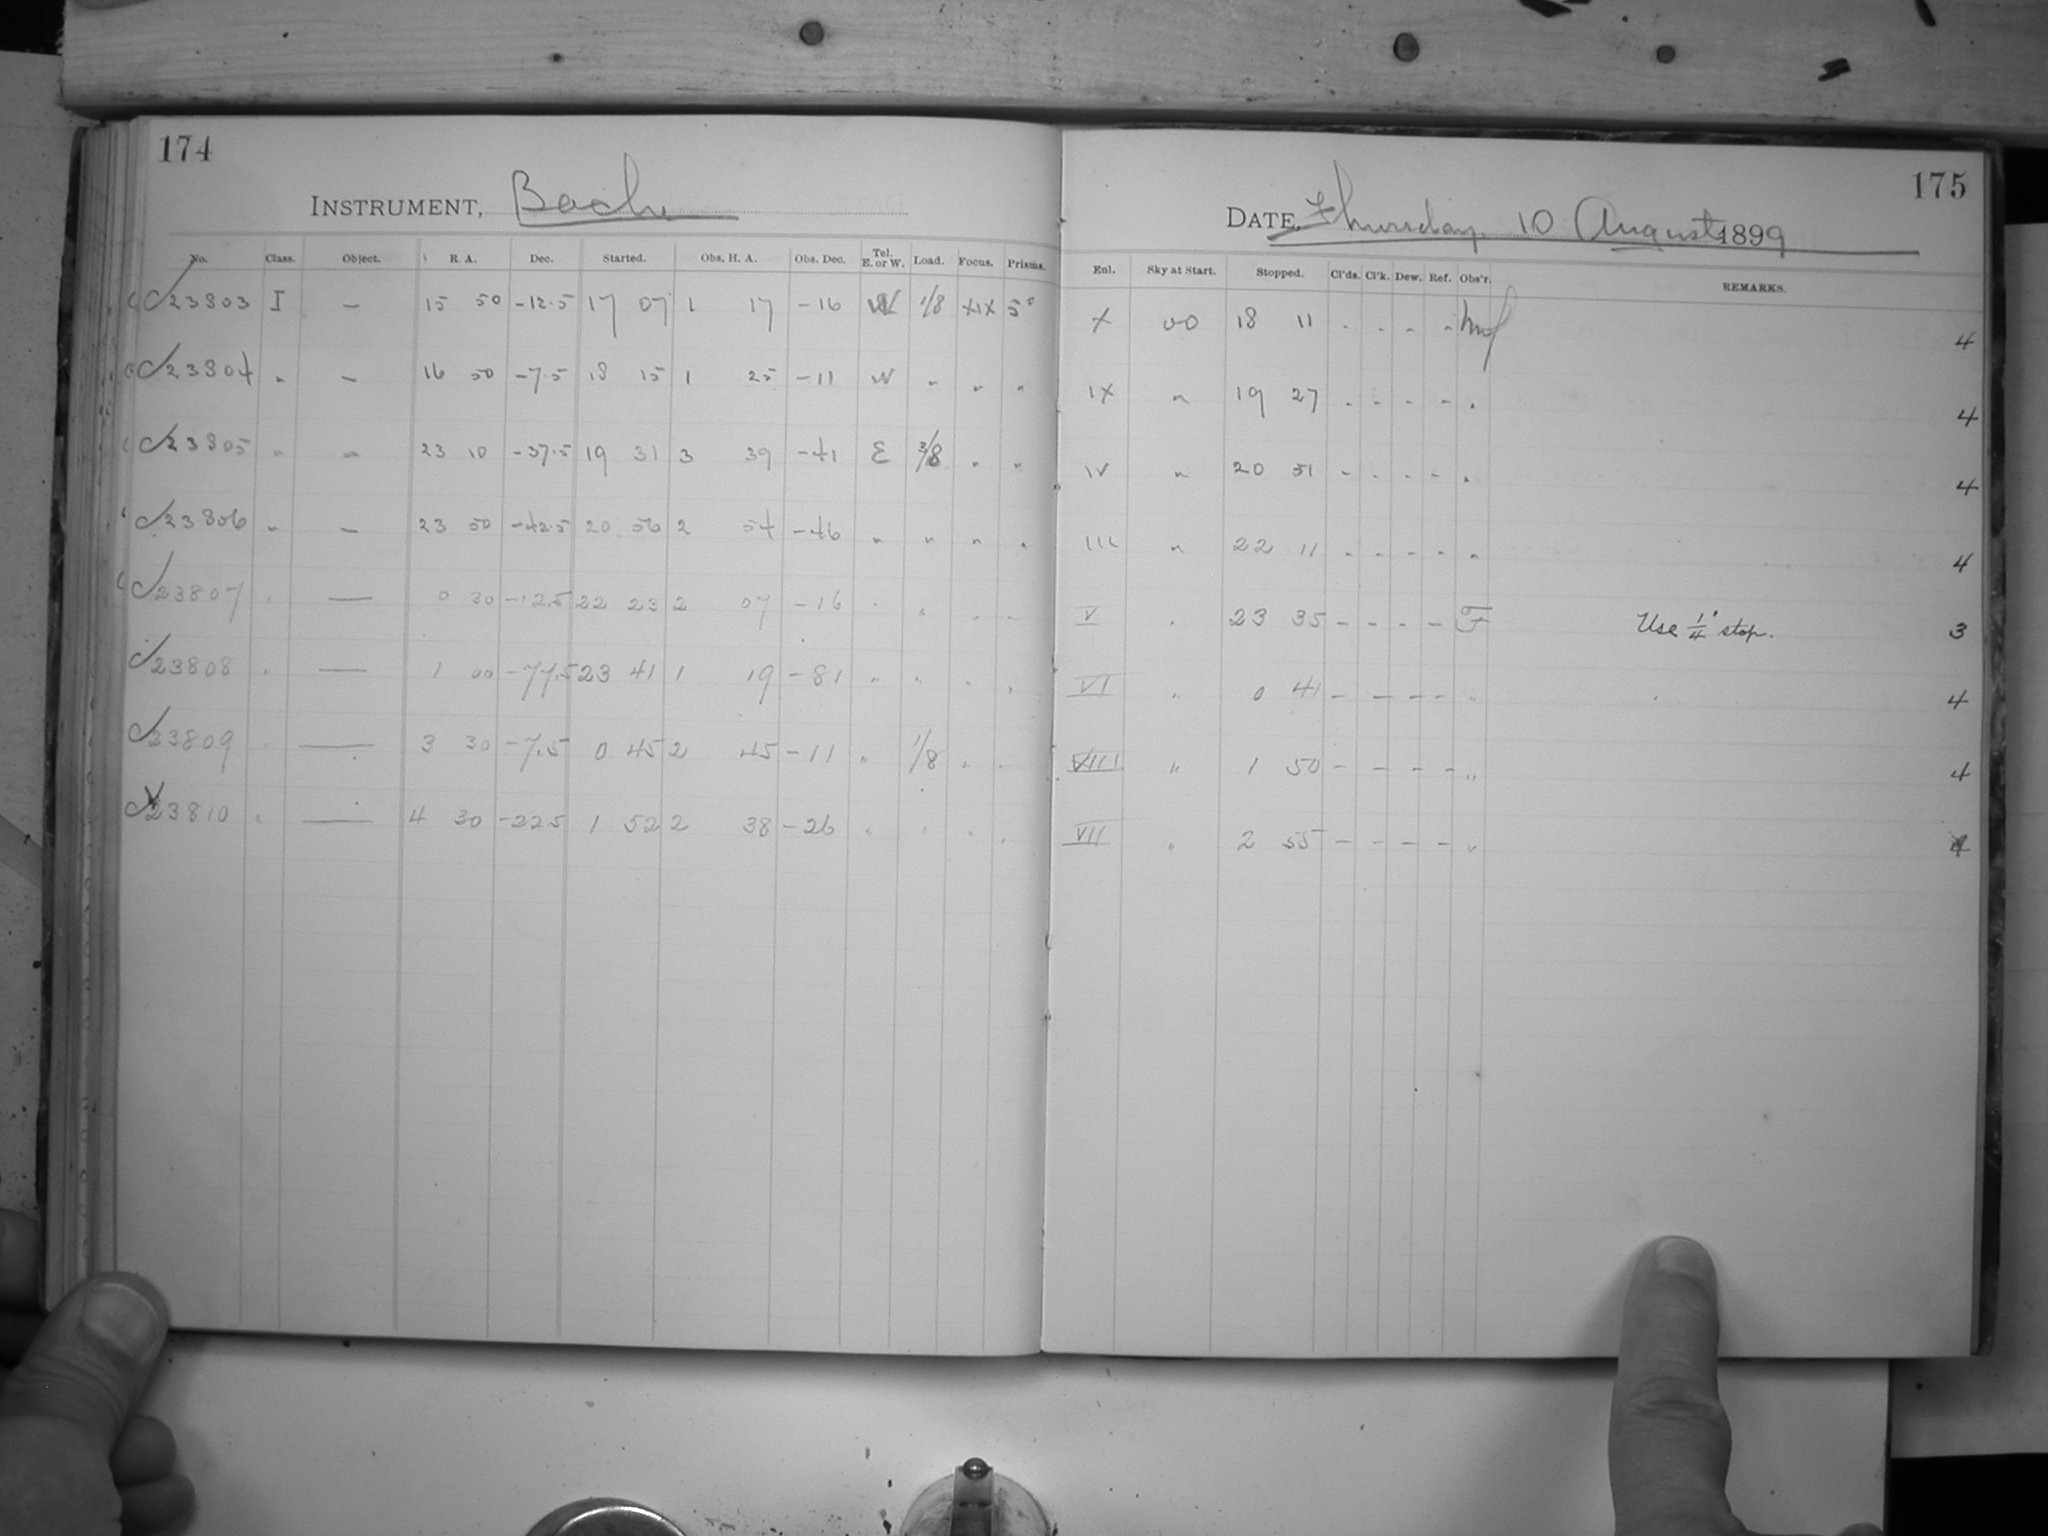 174
INSTRUMENT, Bach
No. Class. Object. R. A. Dec. Started. Obs. H. A. Obs. Dec. Tel. E. or W. Load. Focus. Prisms.
C23803 I — 15 50 -12.5 17 07 1 17 -16 W 1/8 XIX 5°
C23804 " — 16 50 -7.5 18 15 1 25 -11 W " " "
C23805 " — 23 10 -37.5 19 31 3 39 -41 E 3/8 " "
C23806 " — 23 50 -42.5 20 56 2 54 -46 " " " "
C23807 " — 0 30 -12.5 22 23 2 07 -16 " " " "
C23808 " — 1 00 -77.5 23 41 1 19 -81 " " " "
C23809 " — 3 30 -7.5 0 45 2 45 -11 " 1/8 " "
C23810 " — 4 30 -22.5 1 52 2 38 -26 " " " "
175
DATE, Thursday 10 August 1899
Enl. Sky at Start. Stopped. Cl'ds. Cl'k. Dew. Ref. Obs'r. REMARKS.
X 18 11 - - - - 4
IX " 19 27 - - - - " 4
IV " 20 31 - - - - " 4
III " 22 11 - - - - " 4
V " 23 35 - - - - F Use 1/4" stop. 3
VI " 0 41 - - - - " 4
VIII " 1 50 - - - - " 4
VII " 2 55 - - - - "